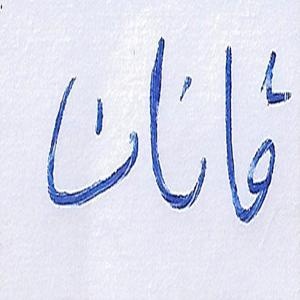 ڤانان